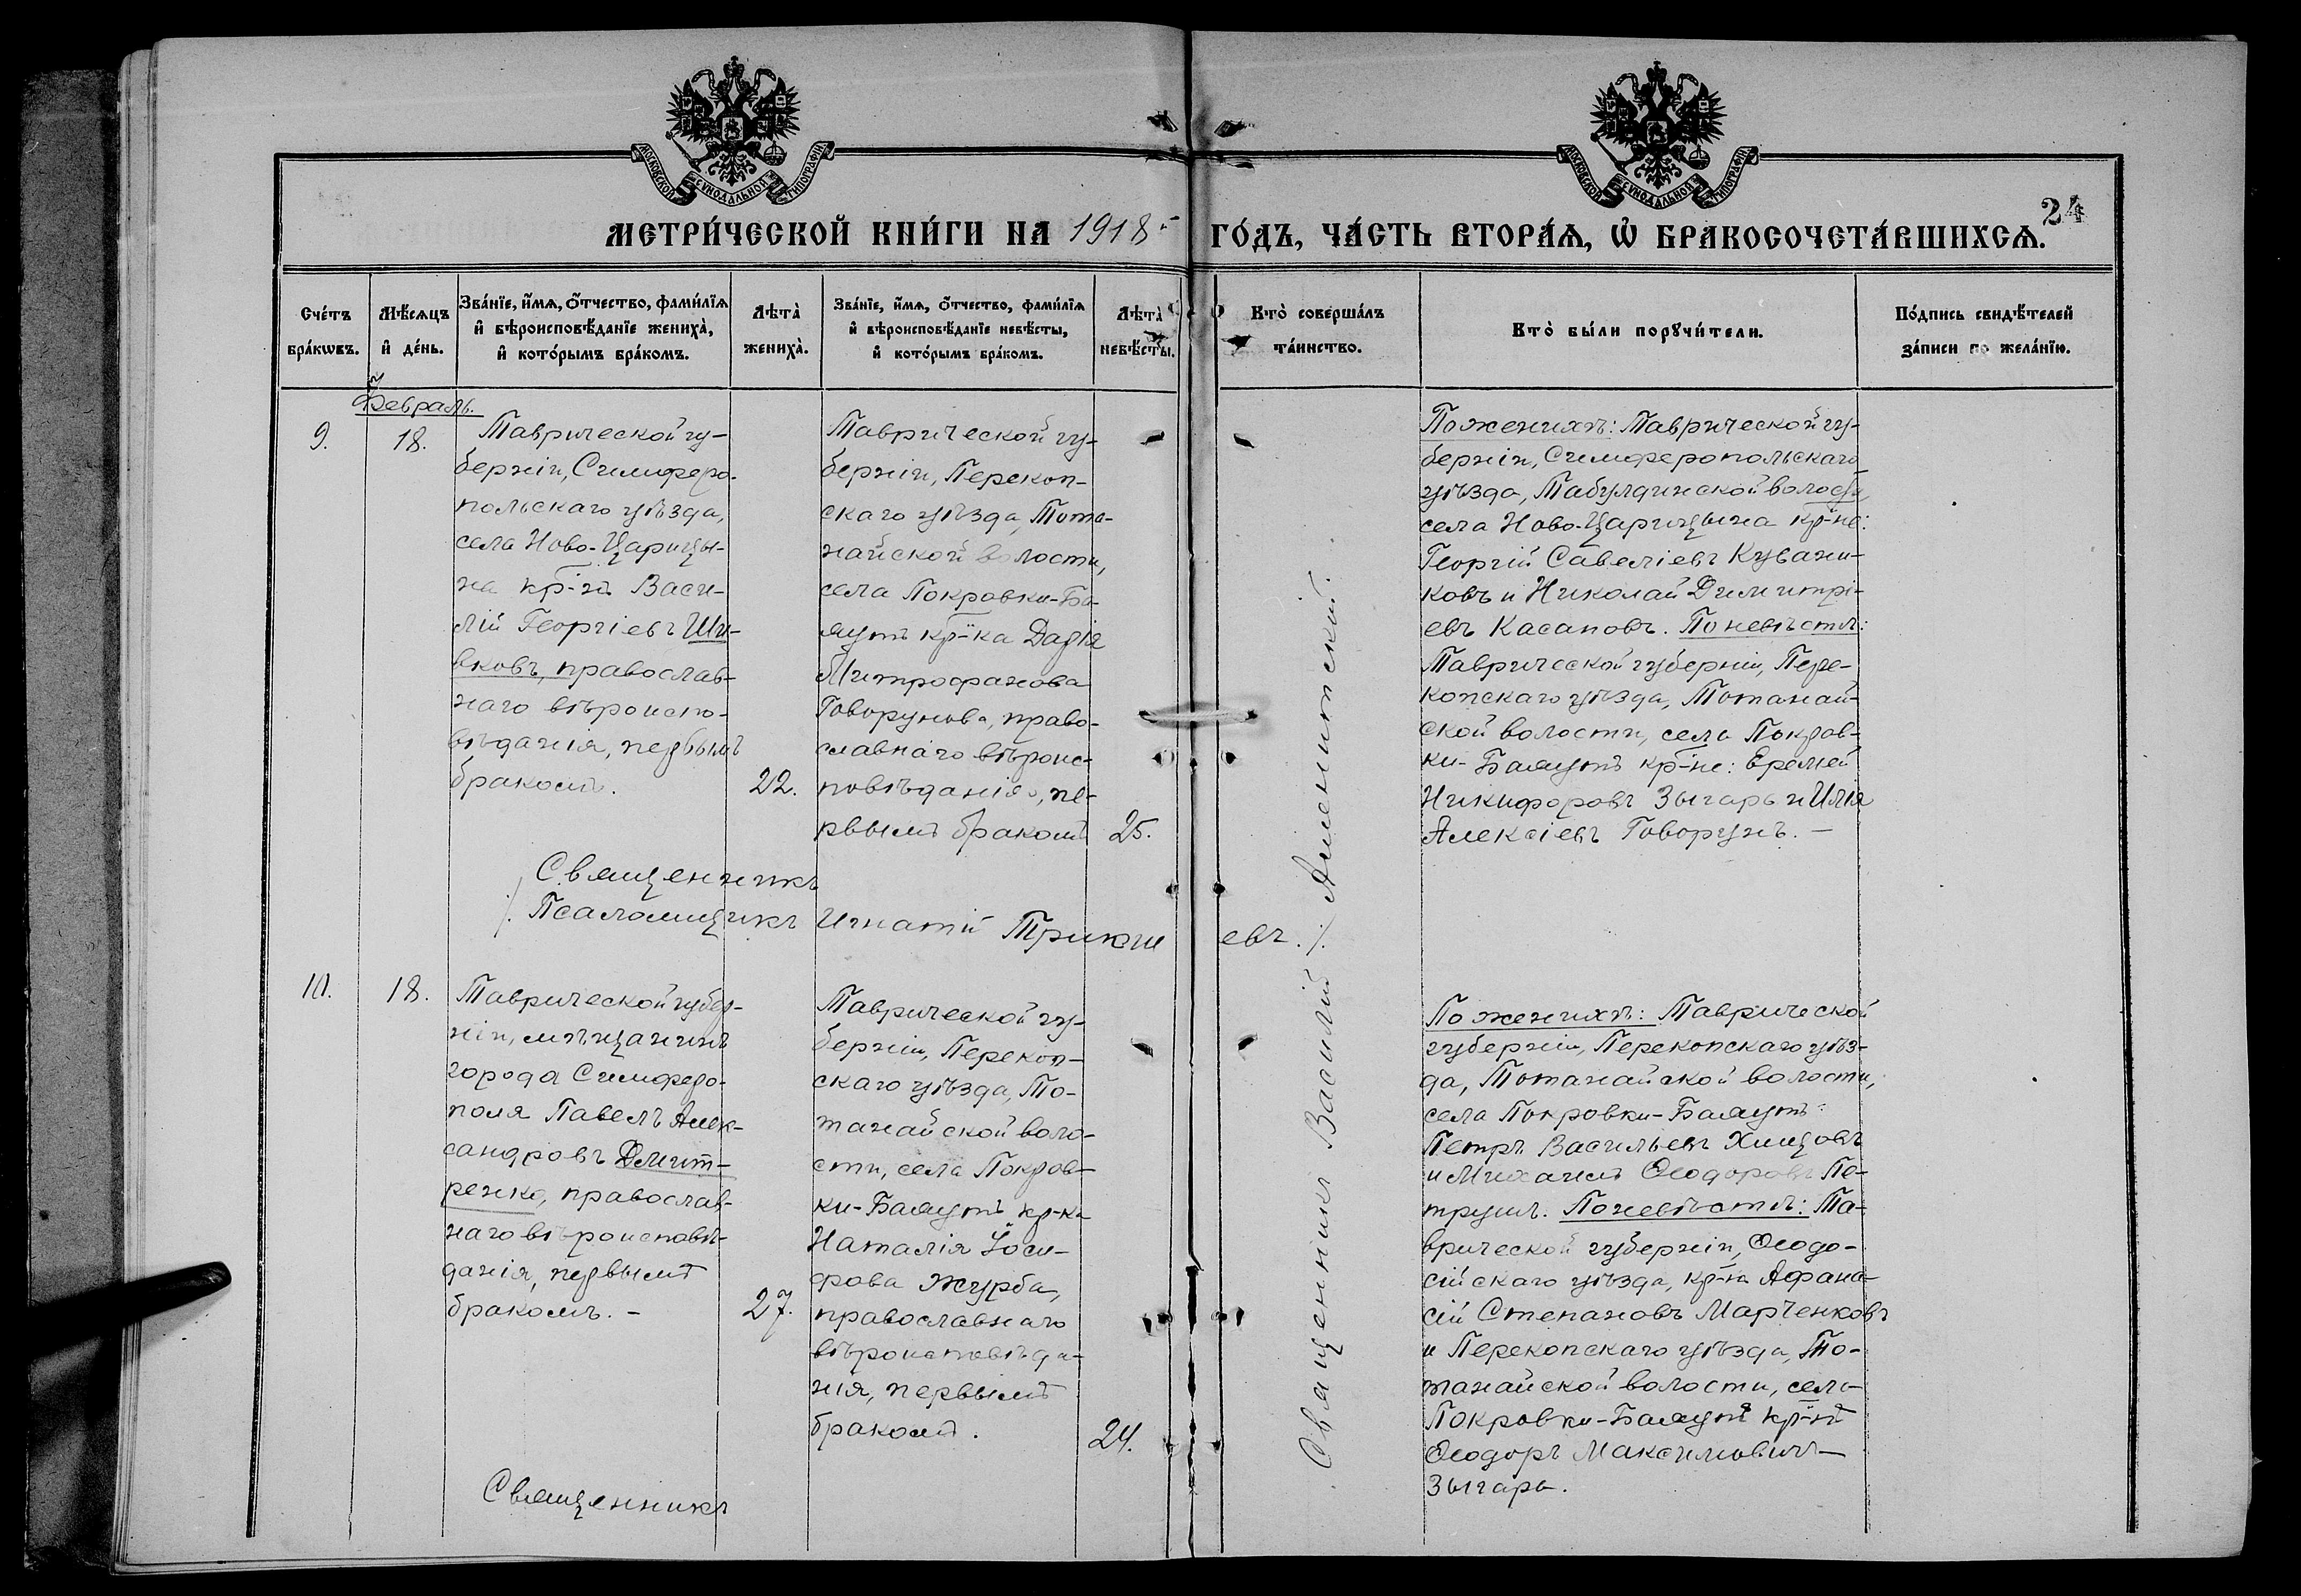 МОСКОВСКОЙ СѴНОДАЛЬНОЙ ТИПОГРАФІИ
МОСКОВСКОЙ СѴНОДАЛЬНОЙ ТИПОГРАФІИ
24
МЕТРИ́ЧЕСКОЙ КНИ́ГИ НА 1918 ГО́ДЪ, ЧА́СТЬ ВТОРА́Ѧ, Ѽ БРАКОСОЧЕТА́ВШИХСѦ.
Сче́тъ
бра́кѡвъ.
Мѣ́сѧцъ
и҆ де́нь.
Зва́нїе, и҆́мѧ, ѻ҆́тчество, фами́лїѧ
и҆ вѣроисповѣ́данїе жениха̀,
и҆ кото́рымъ бра́комъ.
Лѣта̀
жениха̀.
Зва́нїе, и҆́мѧ, ѻ҆́тчество, фами́лїѧ
и҆ вѣроисповѣ́данїе невѣ́сты,
и҆ кото́рымъ бра́комъ.
Лѣта̀
невѣ́сты.
Кто̀ соверша́лъ
та́инство.
Кто̀ бы́ли порꙋчи́тели.
По́дпись свидѣ́телей
за́писи по жела́нїю.
Февраль.
9.
18.
Таврической гу-
берніи, Симферо-
польскаго уѣзда,
села Ново-Царицы-
на кр-нъ Васи-
лій Георгіевъ Ши-
вковъ, православ-
наго вѣроиспо-
вѣданія, первымъ
бракомъ.
22.
Таврической гу-
берніи, Перекоп-
скаго уѣзда, Тота-
найской волости,
села Покровки-Ба-
яутъ кр-ка Дарія
Митрофанова
Говорунова, право-
славнаго вѣроис-
повѣданія, пе-
рвымъ бракомъ
25.
По женихѣ: Таврической гу-
берніи, Симферопольскаго
уѣзда, Табулдинской волости,
села Ново-Царицына кр-не:
Георгій Савеліевъ Кувани-
ковъ и Николай Димитрі-
евъ Касаповъ. По невѣстѣ:
Таврической губерніи, Пере-
копскаго уѣзда, Тотанай-
ской волости, села Покров-
ки-Баяутъ кр-не: Еремей
Никифоровъ Зыгарь и Илія
Алексіевъ Говорунъ. —
Священникъ
Псаломщикъ Игнатій Трикше евъ.
10.
18.
Таврической губер-
ніи, мѣщанинъ
города Симферо-
поля Павелъ Алек-
сандровъ Дмит-
ренко, православ-
наго вѣроисповѣ-
данія, первымъ
бракомъ. —
27.
Таврической гу-
берніи, Перекоп-
скаго уѣзда, То-
танайской воло-
сти, села Покров-
ки-Баяутъ кр-ка
Наталія Іоси-
фова Журба,
православнаго
вѣроисповѣда-
нія, первымъ
бракомъ.
24.
Священникъ Василій Аменитский.
По женихѣ: Таврической
губерніи, Перекопскаго уѣз-
да, Тотанайской волости,
села Покровки-Баяутъ:
Петръ Васильевъ Хищовъ
и Михаилъ Ѳеодоровъ Пе-
трушъ. По невѣстѣ: Та-
врической губерніи, Ѳеодо-
сійскаго уѣзда, кр-нъ Афана-
сій Степановъ Марченковъ
и Перекопскаго уѣзда, То-
танайской волости, села
Покровки-Баяутъ кр-нъ
Ѳеодоръ Максимовичъ
Зыгарь.
Священникъ